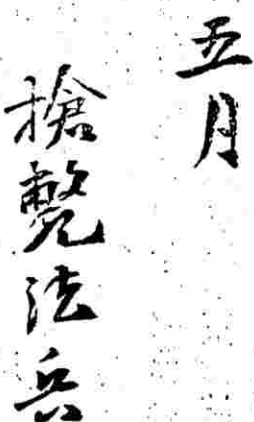 五月
搶斃法兵